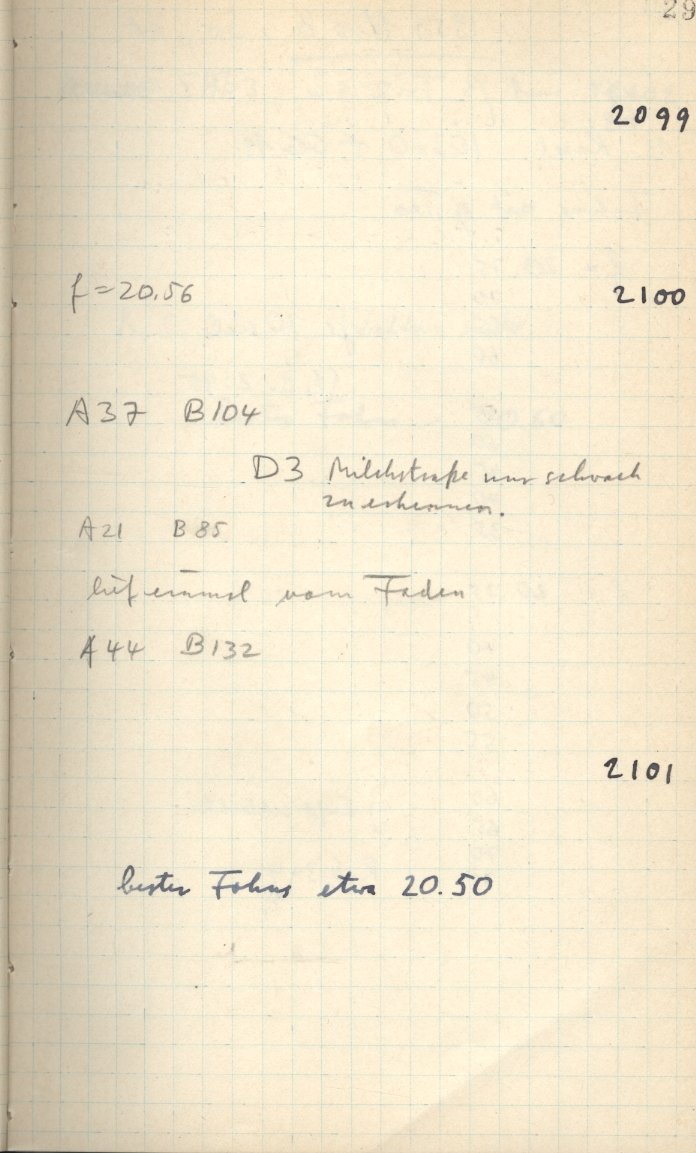 29
2099
f=20.56 2100
A37 B104
D3 Milchstraße nur schwach
zu erkennen.
A21 B85
lief einmal vom Faden
A44 B132
2101
bester Fokus etwa 20.50